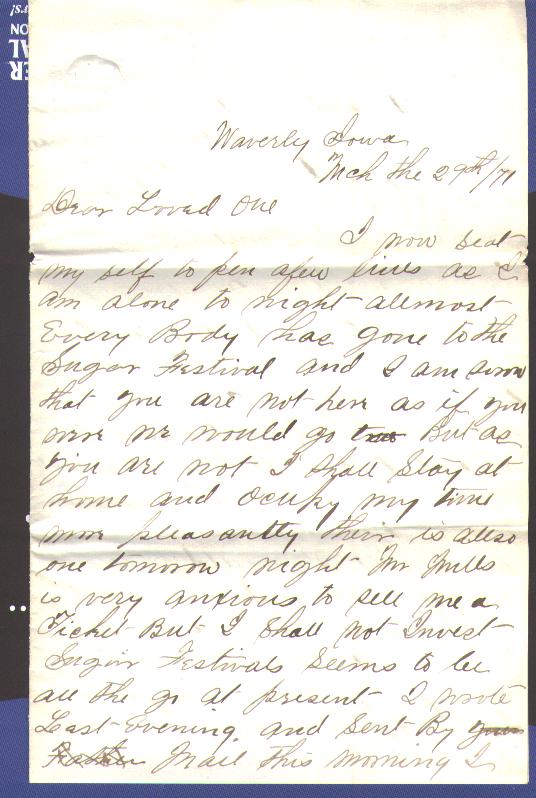 Waverly Iowa
Mch the 29th/71
Dear Loved One
I now seat
my self to pen a few lines as I
am alone to night allmost
Every Body has gone to the
Sugar Festival and I am
that you are not here as if you
were we would go too But as
you are not I shall Stay at
home and Ocupy my time
more pleasantly their is allso
one tomorow night Mr Mills
is very anxious to sell me a
Ticket But I Shall not Invest
Sugar Festivals Seems to be
all the go at present I wrote
Last Evening and Sent By your
Father Mail this morning I